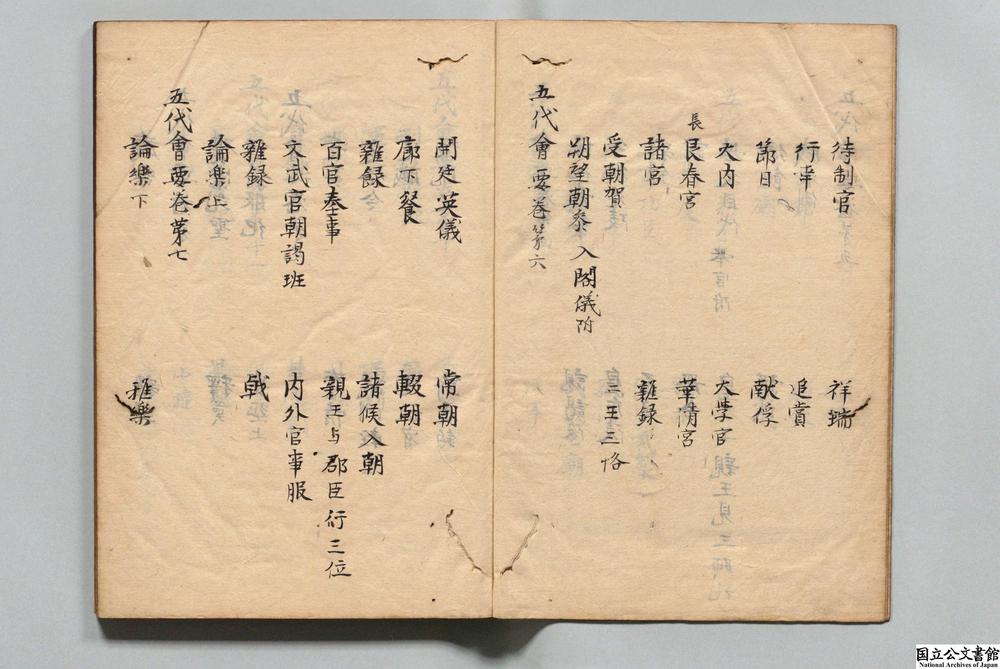 待制官 祥瑞
行幸 追賞
節日 献俘
大内 大学官
長
艮春宮 華清宮
諸宮 雜録
受朝賀 二王三恪
朔望朝参 入閣儀附
五代會要卷第六
開延英儀 常朝
廊下餐 輟朝
雜録 諸候入朝
百官奉事 親王与郡臣行三位
文武官朝謁班 内外官章服
雜録 戟
論樂上
五代會要卷第七
論樂下 雅樂
国立公文書館
National Archives of Japan